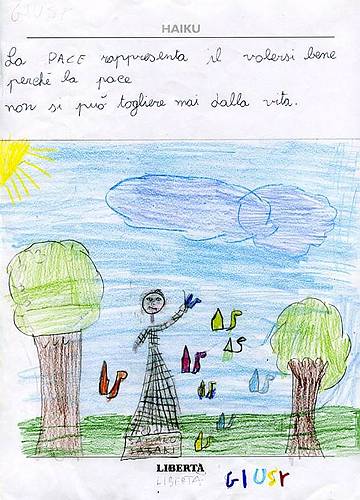 GIUSY
HAIKU
La PACE rappresenta il volersi bene
perché la pace
non si può togliere mai dalla vita.
LIBERTÀ
LIBERTÀ
GIUSY